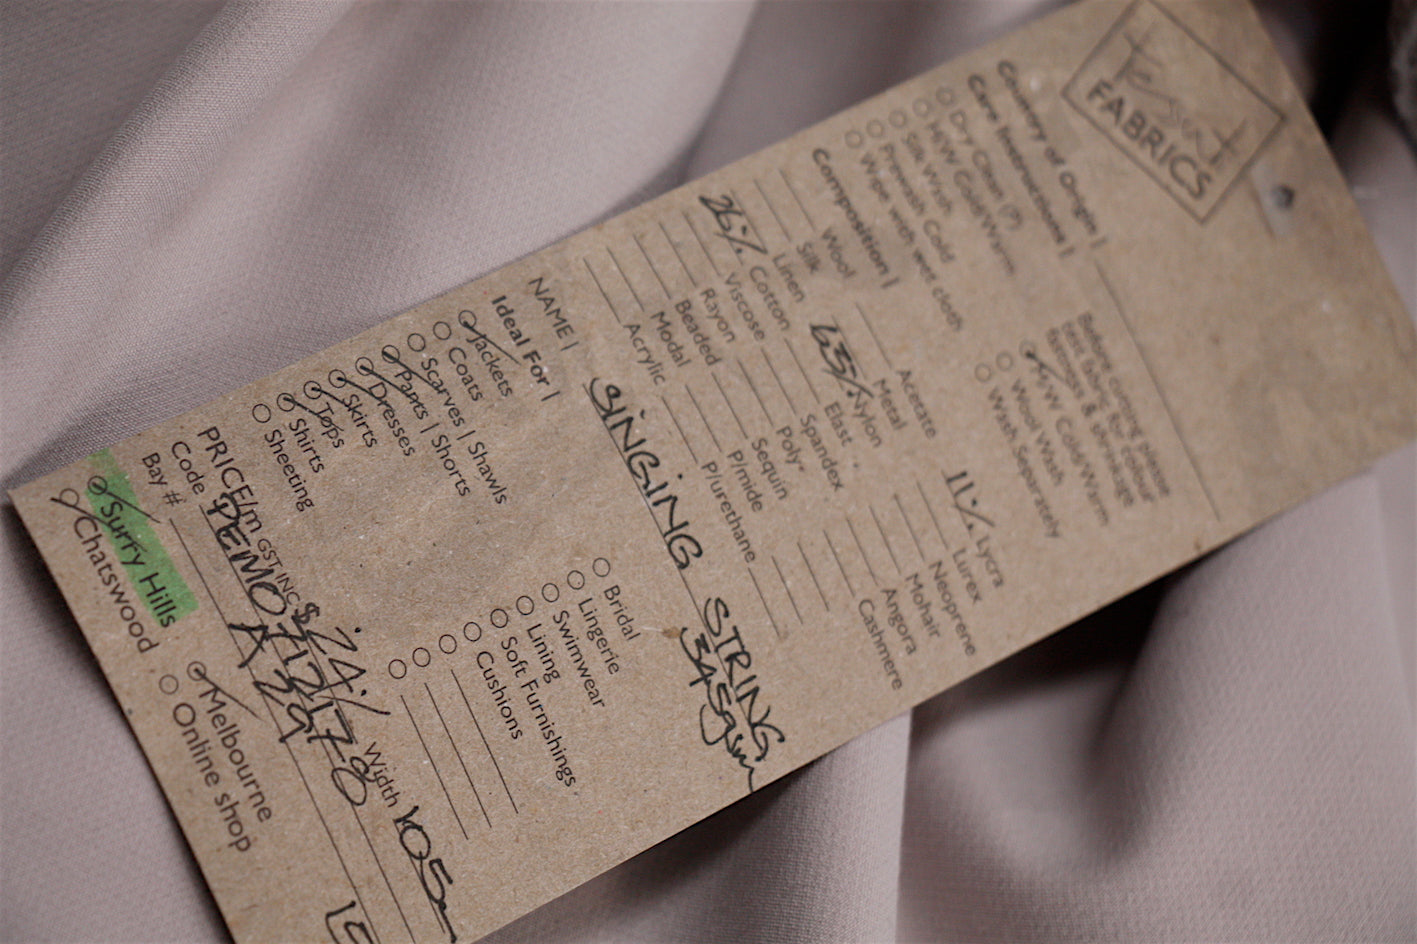 Tessuti
FABRICS
Country of Origin |
Care Instructions |
Dry Clean (P)
H/W Cold/Warm
Silk Wash
Prewash Cold
Wipe with wet cloth
Before cutting please
test fabric for colour
fastness & shrinkage
M/W Cold/Warm
Wool Wash
Wash Separately
Composition |
Wool
Silk
Linen
26% Cotton
Viscose
Rayon
Beaded
Modal
Acrylic
Acetate
Metal
63% Nylon
Elast.
Spandex
Poly.
Sequin
P/mide
P/urethane
11% Lycra
Lurex
Neoprene
Mohair
Angora
Cashmere
NAME | SINGING STRING
345gsm
Ideal For |
Jackets
Coats
Scarves | Shawls
Pants | Shorts
Dresses
Skirts
Tops
Shirts
Sheeting
Bridal
Lingerie
Swimwear
Lining
Soft Furnishings
Cushions
PRICE/m GST INC $24./ Width 105
Code
Bay #
Surry Hills
Chatswood
Melbourne
Online shop